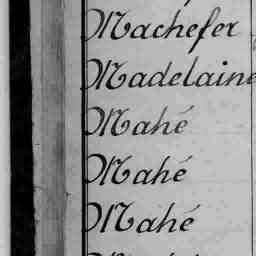 Machefer
Madelaine
Mahé
Mahé
Mahé